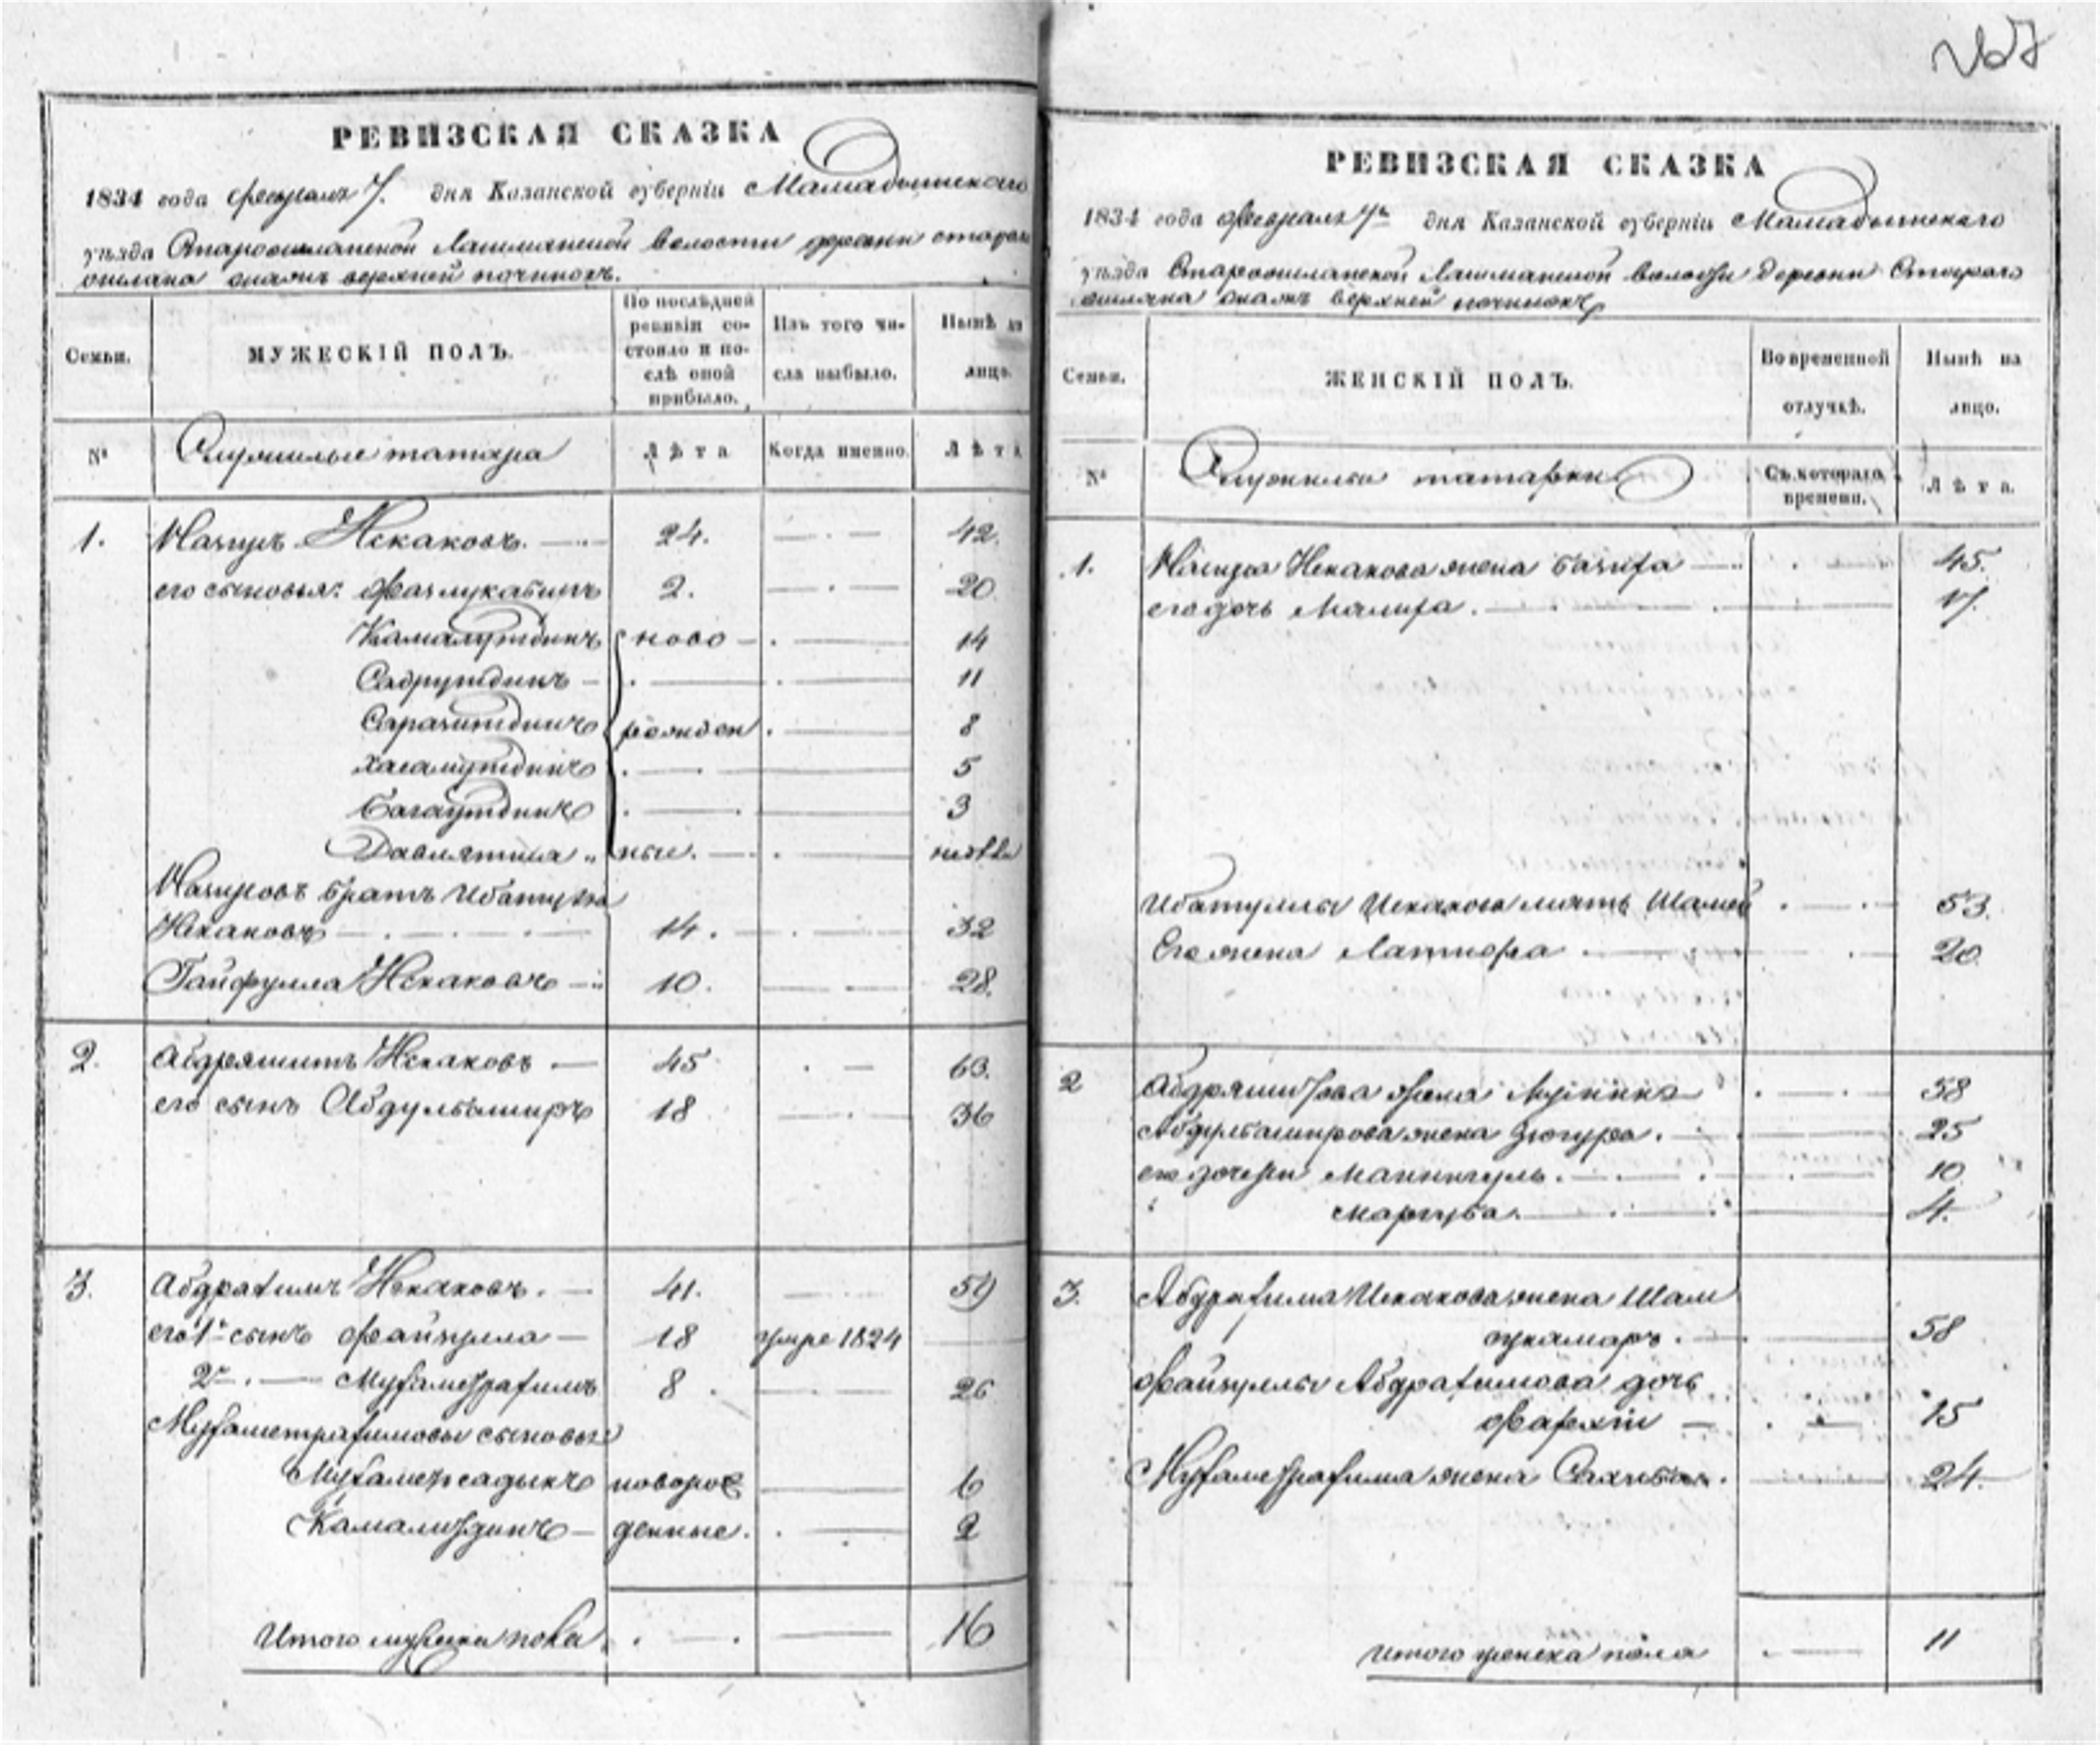 РЕВИЗСКАЯ СКАЗКА
1834 года февраля 7. дня Казанской губерніи Мамадышскаго
уѣзда Староошланской Лашманской волости деревни старова
ошлана онаяжъ верхней починокъ.
Семьи.
МУЖЕСКІЙ ПОЛЪ.
По послѣдней ревизіи состояло и послѣ оной прибыло.
Изъ того числа выбыло.
Нынѣ на лицо.
№
Служилые татара
Лѣта
Когда именно.
Лѣта
1. Насыръ Искаковъ. 24. 42.
его сыновья: Фазлукабипъ 2. 20.
Камалутдинъ ново 14
Садрутдинъ 11
Сиразитдинъ рожден 8
Хасамутдинъ 5
Багаутдинъ 3
Давлятша ные.
Насыровъ братъ Ибатулла
Искаковъ 14. 32
Гайфулла Искаковъ 10. 28.
2. Абдряшитъ Искаковъ 45 63.
его сынъ Абдулбаширъ 18 36
3. Абдрахимъ Искаковъ. 41. 59
его 1й сынъ Файзулла 18 умре 1824
2й Мухаметрахимъ 8 26
Мухаметрахимовы сыновья
Мухаметсадыкъ новорож 6
Камалитдинъ денные. 2
Итого мужска пола 16
РЕВИЗСКАЯ СКАЗКА
1834 года февраля 7го дня Казанской губерніи Мамадышскаго
уѣзда Староошланской Лашманской волости деревни Стараго
ошлана онаяжъ верхней починокъ
Семьи.
ЖЕНСКІЙ ПОЛЪ.
Во временной отлучкѣ.
Нынѣ на лицо.
№
Служилыя татарки
Съ котораго времени.
Лѣта.
1. Насыра Искакова жена Багира 45.
его дочь Малиха. 17.
Ибатуллы Искакова мать 53.
Его жена Латифа 20.
2 Абдряшитова жена 58
Абдулбаширова жена Зюгура. 25
его дочери Маннигуль. 10
Маргуба. 4.
3. Абдрахима Искакова жена Шам
сукамаръ. 58
Файзуллы Абдрахимова дочь
15
Мухаметрахима жена 24.
итого женска пола 11